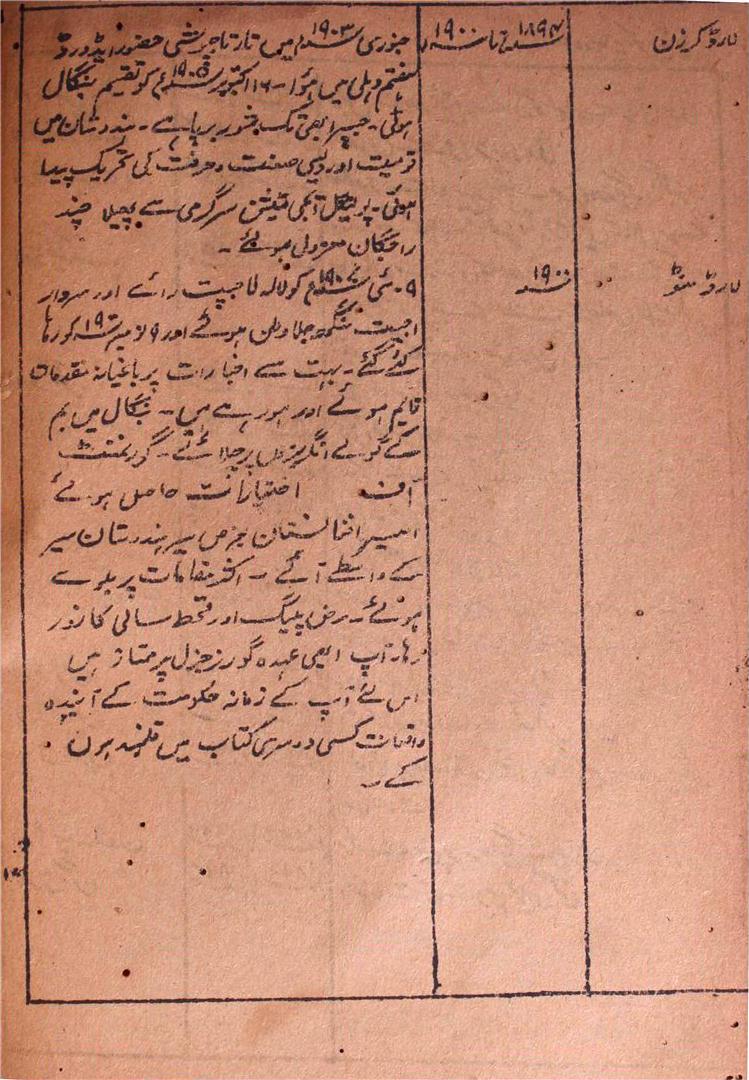 لارڈ کرزن
۱۸۹۴ء تا ۱۹۰۰ء
جنوری ۱۹۰۳ء میں تاجپوشی حضور ایڈورڈ
ہفتم دہلی میں ہوا۔ ۱۶ اکتوبر ۱۹۰۵ء کو تقسیم بنگال
ہوئی۔ جسپر ابھی تک شور برپا ہے۔ ہندوستان میں
قومیت اور دیسی صنعت و حرفت کی تحریک پیدا
ہوئی۔ پولیٹیکل ایجی ٹیشن سرگرمی سے پھیلا چند
راجگان معزول ہوئے۔
لارڈ منٹو
۱۹۰۰ء
۹۔ مئی ۱۹۰۷ء کو لالہ لاجپت رائے اور سردار
اجیت سنگھ جلاوطن ہوئے اور ۹ نومبر کو رہا
کئے گئے۔ بہت سے اخبارات پر باغیانہ مقدمات
قایم ہوئے اور ہو رہے ہیں۔ بنگال میں بم
کے گولے انگریزوں پر چلائے گئے۔ گورنمنٹ
آف اختیارات حاصل ہوئے
امیر افغانستان بغرض سیر ہندوستان سیر
کے واسطے آئے۔ اکثر مقامات پر بلوے
ہوئے۔ مرض پلیگ اور قحط سالی کا زور
رہا۔ آپ ابھی عہدہ گورنر جنرل پر ممتاز ہیں
اس لئے آپ کے زمانہ حکومت کے آیندہ
واقعات کسی دوسری کتاب میں قلمبند ہوں
گے۔